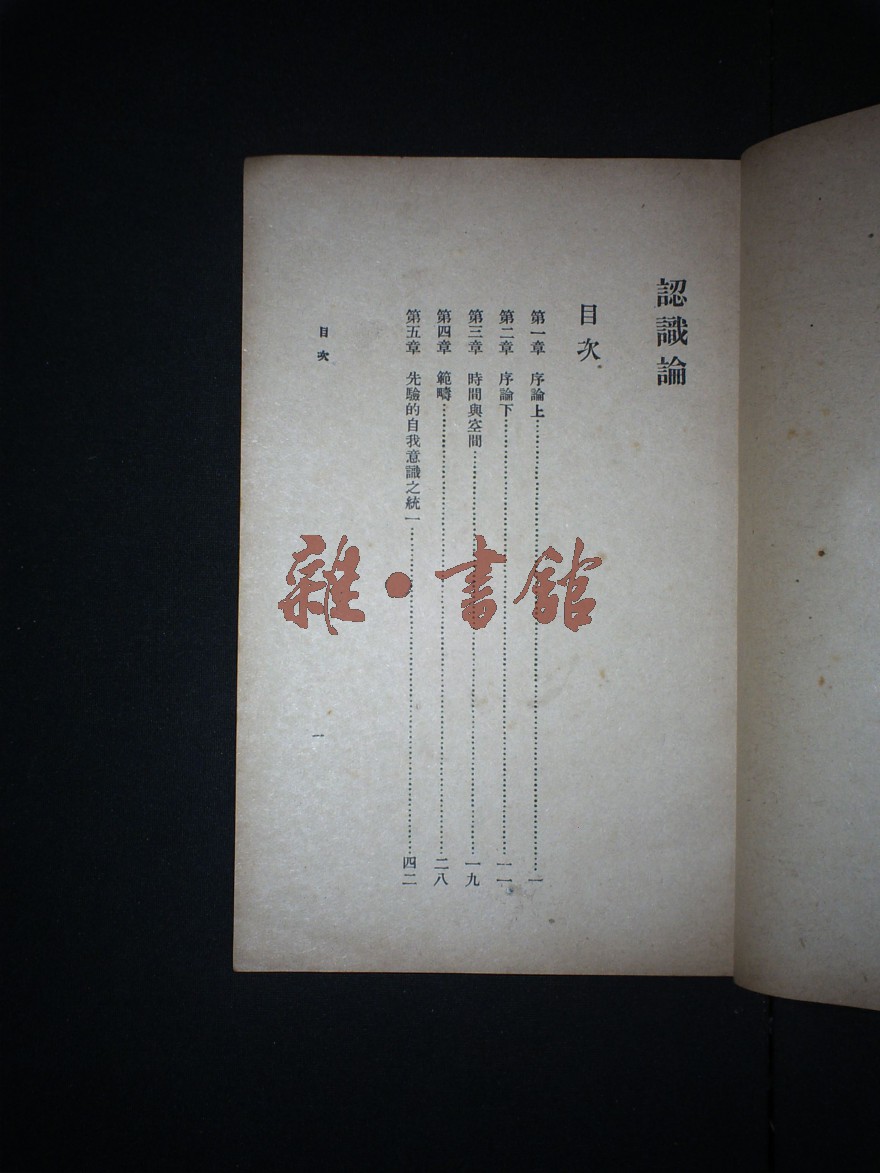 認識論
目次
第一章 序論上……………………一
第二章 序論下……………………一一
第三章 時間與空間……………………一九
第四章 範疇……………………二八
第五章 先驗的自我意識之統一……………………四二
目次
一
雜·書館